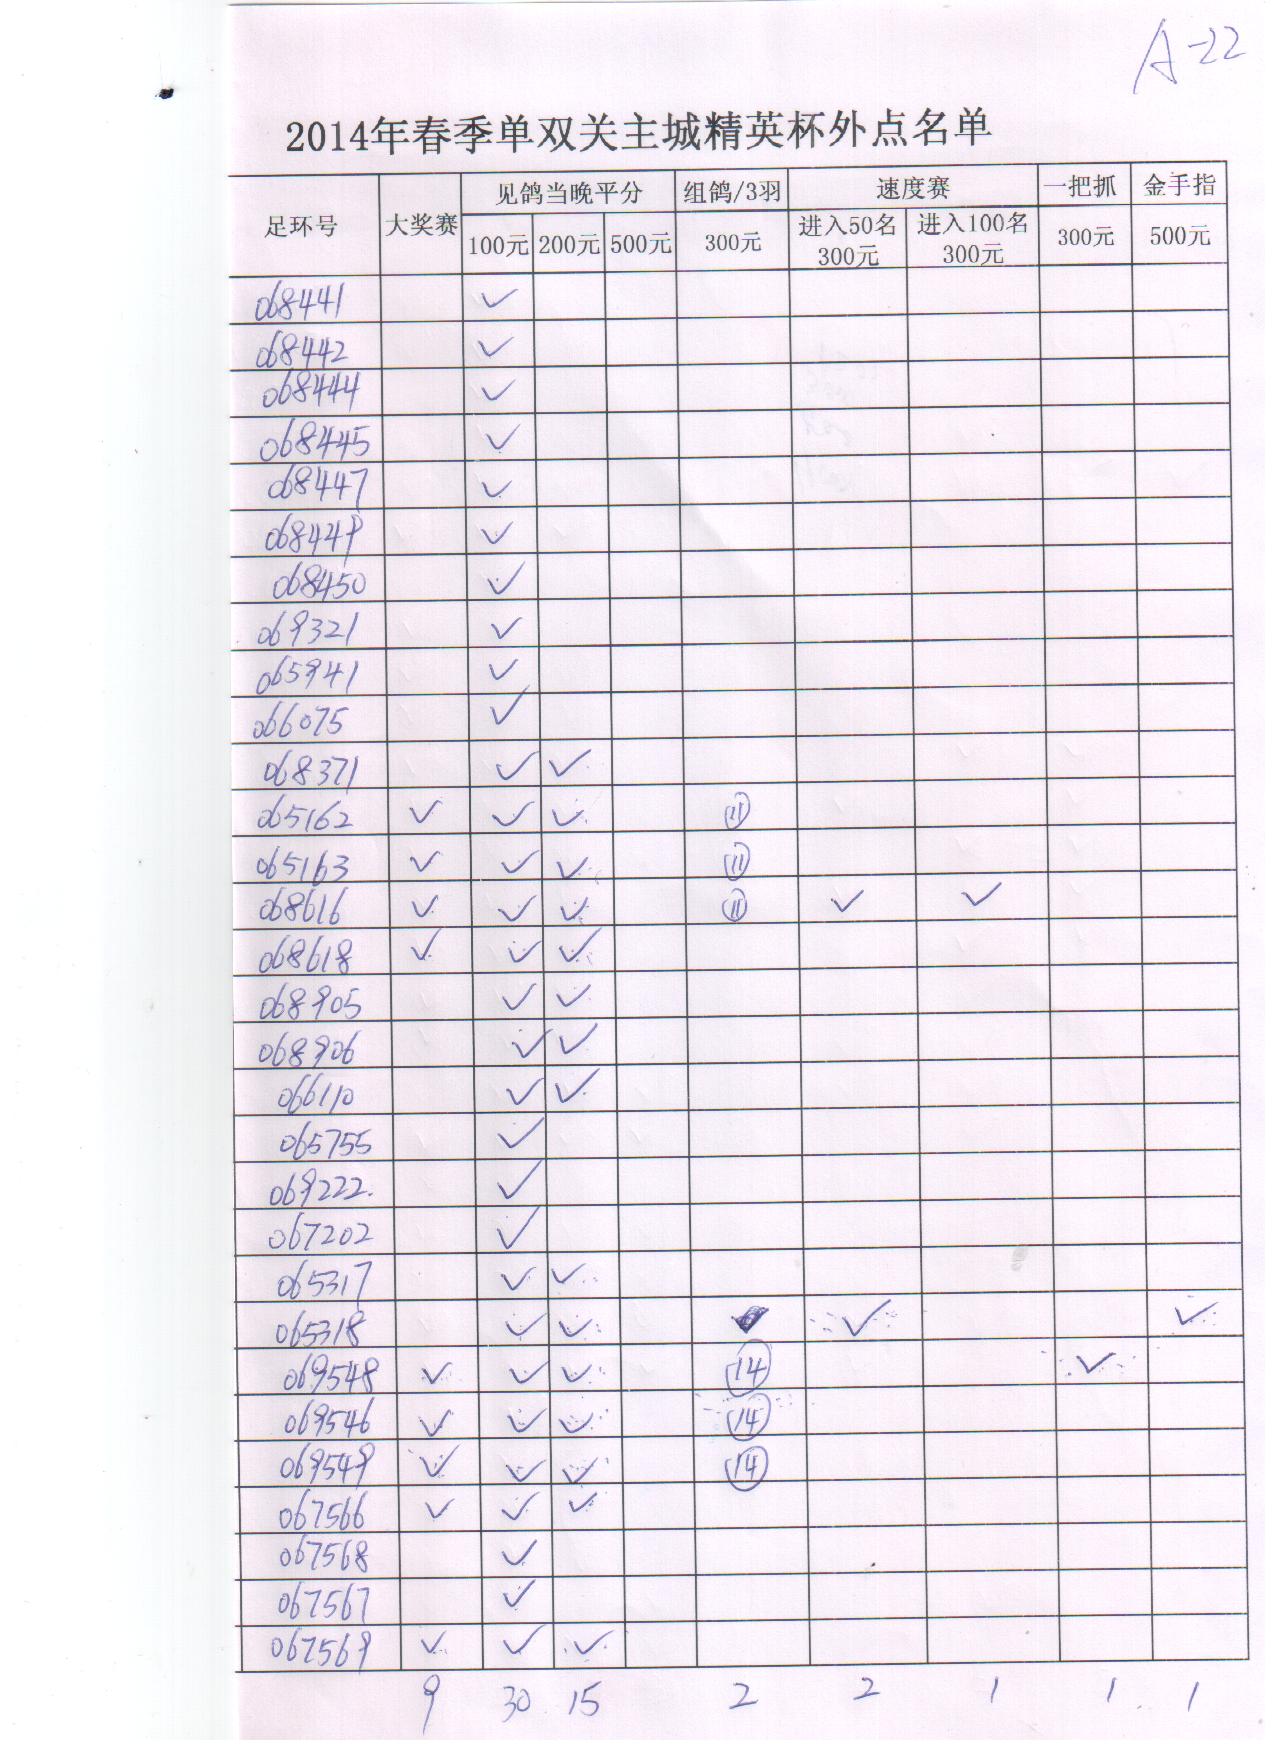 A-22
2014年春季单双关主城精英杯外点名单
足环号 大奖赛 见鸽当晚平分 组鸽/3羽 速度赛 一把抓 金手指
100元 200元 500元 300元 进入50名 300元 进入100名 300元 300元 500元
068441 ✓
068442 ✓
068444 ✓
068445 ✓
068447 ✓
068449 ✓
068450 ✓
069321 ✓
065941 ✓
066075 ✓
068371 ✓ ✓
065162 ✓ ✓ ✓ 11
065163 ✓ ✓ ✓ 11
068616 ✓ ✓ ✓ 11 ✓ ✓
068618 ✓ ✓ ✓
068905 ✓ ✓
068906 ✓ ✓
066110 ✓ ✓
065755 ✓
069222. ✓
067202 ✓
065317 ✓ ✓
065318 ✓ ✓ ✓ ✓
069548 ✓ ✓ ✓ 14 ✓
069546 ✓ ✓ ✓ 14
069549 ✓ ✓ ✓ 14
067566 ✓ ✓ ✓
067568 ✓
067567 ✓
067569 ✓ ✓ ✓
9 30 15 2 2 1 1 1